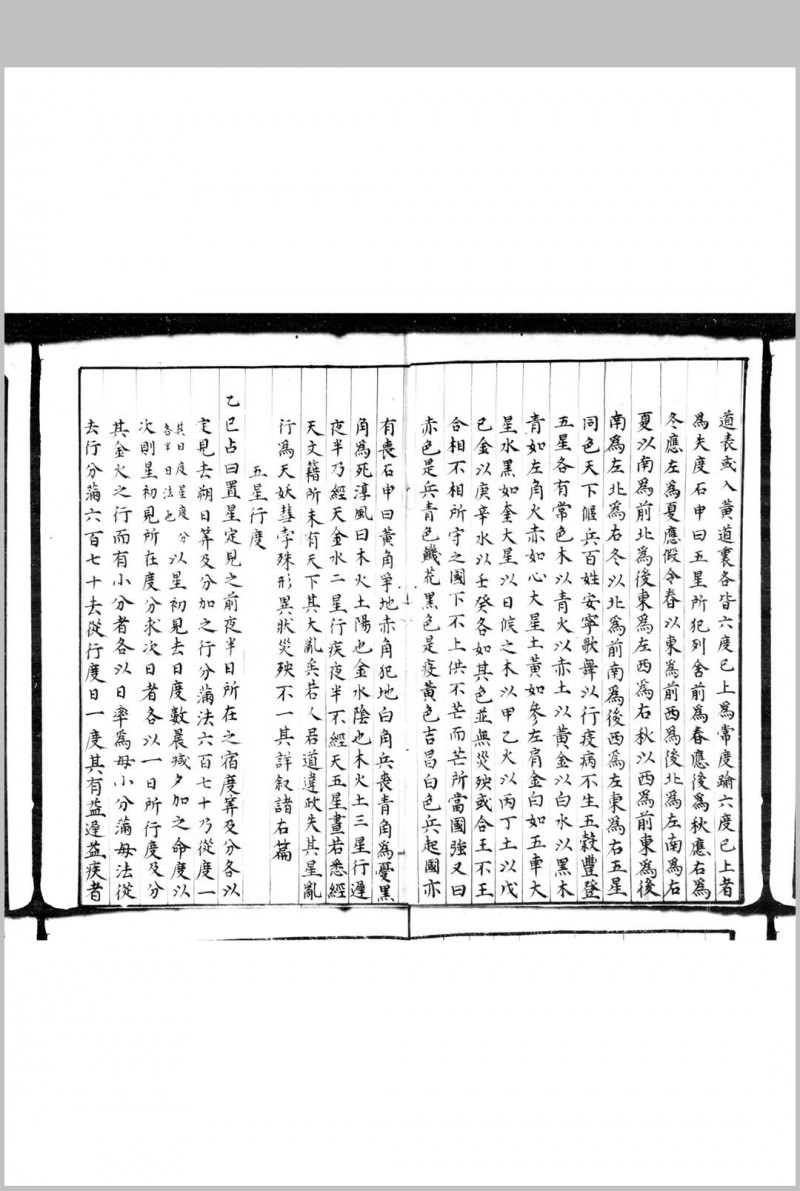 道表或入黃道裏各皆六度已上爲常度踰六度已上者
爲失度石申曰五星所犯列舍前爲春應後爲秋應右爲
冬應左爲夏應假令春以東爲前西爲後北爲左南爲右
夏以南爲前北爲後東爲左西爲右秋以西爲前東爲後
南爲左北爲右冬以北爲前南爲後西爲左東爲右五星
同色天下偃兵百姓安寧歌舞以行疫病不生五穀豐登
五星各有常色木以青火以赤土以黃金以白水以黑木
青如左角火赤如心大星土黃如參左肩金白如五車大
星水黑如奎大星以日候之木以甲乙火以丙丁土以戊
己金以庚辛水以壬癸各如其色並無災殃或合王不王
合相不相所守之國下不上供不芒而芒所當國強又曰
赤色是兵青色饑荒黑色是疫黃色吉昌白色兵起國亦
有喪石申曰黃角爭地赤角犯地白角兵喪青角爲憂黑
角爲死淳風曰木火土陽也金水陰也木火土三星行遲
夜半乃經天金水二星行疾夜半不經天五星晝若悉經
天文籍所未有天下其大亂矣若人君道違政失其星亂
行爲天妖彗孛殊形異狀災殃不一其詳叙諸右篇
五星行度
乙巳占曰置星定見之前夜半日所在之宿度筭及分各以
定見去朔日筭及分加之行分滿法六百七十乃從度一
其日度星度分各半日法也以星初見去日度數晨減夕加之命度以
次則星初見所在度分求次日者各以一日所行度及分
其金火之行而有小分者各以日率爲母小分滿母法從
去行分滿六百七十去從行度日一度其有益遲益疾者